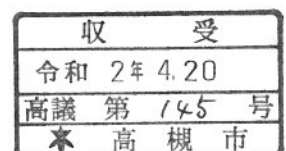 収受
令和 2年 4.20
高議 第 145 号
高槻市